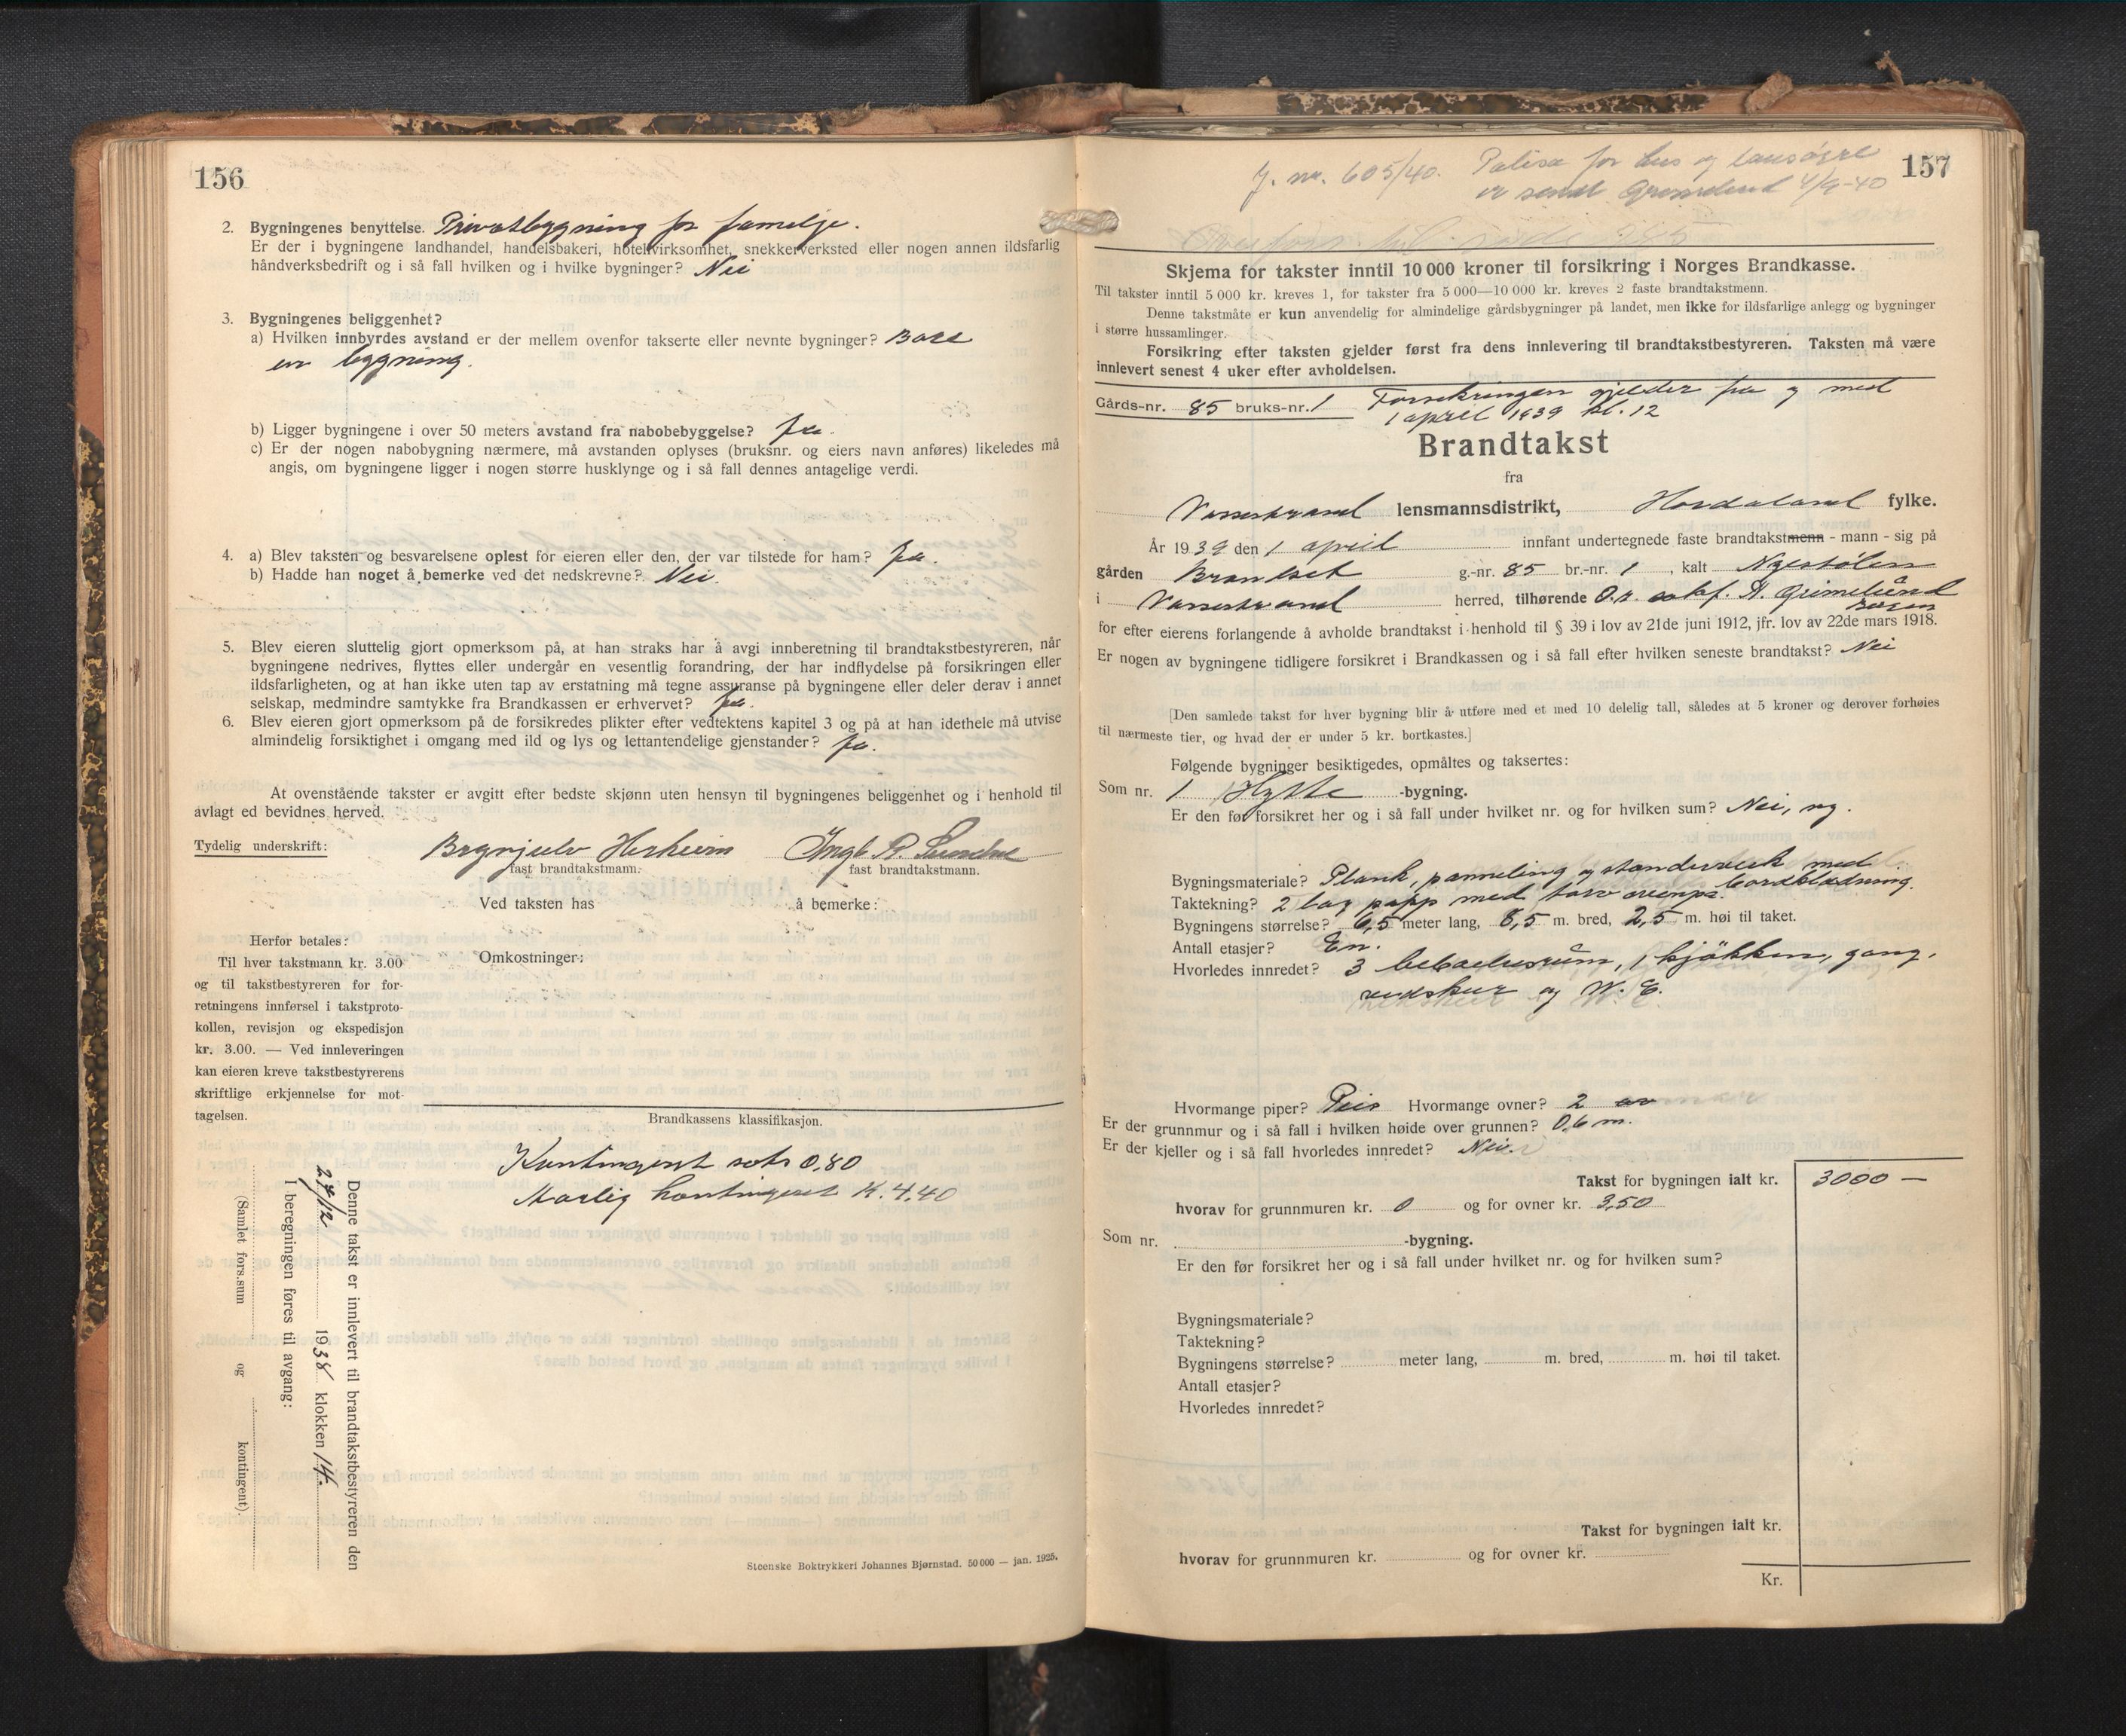 156
2. Bygningenes benyttelse. Privatbygning for familje.
Er der i bygningene landhandel, handelsbakeri, hotellvirksomhet, snekkerverksted eller nogen annen ildsfarlig
håndverksbedrift og i så fall hvilken og i hvilke bygninger? Nei
3. Bygningenes beliggenhet?
a) Hvilken innbyrdes avstand er der mellem ovenfor takserte eller nevnte bygninger? Bare
en bygning.
b) Ligger bygningene i over 50 meters avstand fra nabobebyggelse? Ja.
c) Er der nogen nabobygning nærmere, må avstanden oplyses (bruksnr. og eiers navn anføres) likeledes må
angis, om bygningene ligger i nogen større husklynge og i så fall dennes antagelige verdi.
4. a) Blev taksten og besvarelsene oplest for eieren eller den, der var tilstede for ham? Ja.
b) Hadde han noget å bemerke ved det nedskrevne? Nei.
5. Blev eieren sluttelig gjort opmerksom på, at han straks har å avgi innberetning til brandtakstbestyreren, når
bygningene nedrives, flyttes eller undergår en vesentlig forandring, der har indflydelse på forsikringen eller
ildsfarligheten, og at han ikke uten tap av erstatning må tegne assuranse på bygningene eller deler derav i annet
selskap, medmindre samtykke fra Brandkassen er erhvervet? Ja.
6. Blev eieren gjort opmerksom på de forsikredes plikter efter vedtektens kapitel 3 og på at han idethele må utvise
almindelig forsiktighet i omgang med ild og lys og lettantendelige gjenstander? Ja.
At ovenstående takster er avgitt efter bedste skjønn uten hensyn til bygningenes beliggenhet og i henhold til
avlagt ed bevidnes herved.
Tydelig underskrift: Brynjulv Herheim Ingb. R.
fast brandtakstmann. fast brandtakstmann.
Ved taksten has å bemerke:
Herfor betales:
Til hver takstmann kr. 3.00
og til takstbestyreren for for-
retningens innførsel i takstproto-
kollen, revisjon og ekspedisjon
kr. 3.00. — Ved innleveringen
kan eieren kreve takstbestyrerens
skriftlige erkjennelse for mot-
tagelsen.
Omkostninger:
Brandkassens klassifikasjon.
Kontingent sats 0,80
Aarlig kontingent K. 4.40
Denne takst er innlevert til brandtakstbestyreren den
27/12 1938 klokken 14.
I beregningen føres til avgang:
(Samlet fors.sum og kontingent).
Steenske Boktrykkeri Johannes Bjørnstad. 50 000 — jan. 1925.
157
J. nr. 605/40. Polise for hus og lausøyre
er sendt Grimelund 4/9-40
Skjema for takster inntil 10 000 kroner til forsikring i Norges Brandkasse.
Til takster inntil 5 000 kr. kreves 1, for takster fra 5 000—10 000 kr. kreves 2 faste brandtakstmenn.
Denne takstmåte er kun anvendelig for almindelige gårdsbygninger på landet, men ikke for ildsfarlige anlegg og bygninger
i større hussamlinger.
Forsikring efter taksten gjelder først fra dens innlevering til brandtakstbestyreren. Taksten må være
innlevert senest 4 uker efter avholdelsen.
Gårds-nr. 85 bruks-nr. 1 Forsikringen gjelder fra og med
1 april 1939 kl. 12
Brandtakst
fra
Vossestrand lensmannsdistrikt, Hordaland fylke.
År 1939 den 1 april innfant undertegnede faste brandtakstmenn - mann - sig på
gården Brandset g.-nr. 85 br.-nr. 1, kalt Nyestølen
i Vossestrand herred, tilhørende O.r. sakf. A. Grimelund
Bergen
for efter eierens forlangende å avholde brandtakst i henhold til § 39 i lov av 21de juni 1912, jfr. lov av 22de mars 1918.
Er nogen av bygningene tidligere forsikret i Brandkassen og i så fall efter hvilken seneste brandtakst? Nei
[Den samlede takst for hver bygning blir å utføre med et med 10 delelig tall, således at 5 kroner og derover forhøies
til nærmeste tier, og hvad der er under 5 kr. bortkastes.]
Følgende bygninger besiktigedes, opmåltes og taksertes:
Som nr. 1 Hytte -bygning.
Er den før forsikret her og i så fall under hvilket nr. og for hvilken sum? Nei, ny.
Bygningsmateriale? Plank, panneling og standerverk med
bordklædning.
Taktekning? 2 lag papp med torv ovenpå.
Bygningens størrelse? 6,5 meter lang, 8,5 m. bred, 2,5 m. høi til taket.
Antall etasjer? En.
Hvorledes innredet? 3 beboelsesrum, 1 kjøkken, gang,
vedskur og W. C.
Hvormange piper? Peis Hvormange ovner? 2
Er der grunnmur og i så fall i hvilken høide over grunnen? 0,6 m.
Er der kjeller og i så fall hvorledes innredet? Nei.
Takst for bygningen ialt kr. 3000 —
hvorav for grunnmuren kr. 0 og for ovner kr. 3,50
Som nr. -bygning.
Er den før forsikret her og i så fall under hvilket nr. og for hvilken sum?
Bygningsmateriale?
Taktekning?
Bygningens størrelse? meter lang, m. bred, m. høi til taket.
Antall etasjer?
Hvorledes innredet?
Takst for bygningen ialt kr.
hvorav for grunnmuren kr. og for ovner kr.
Kr.